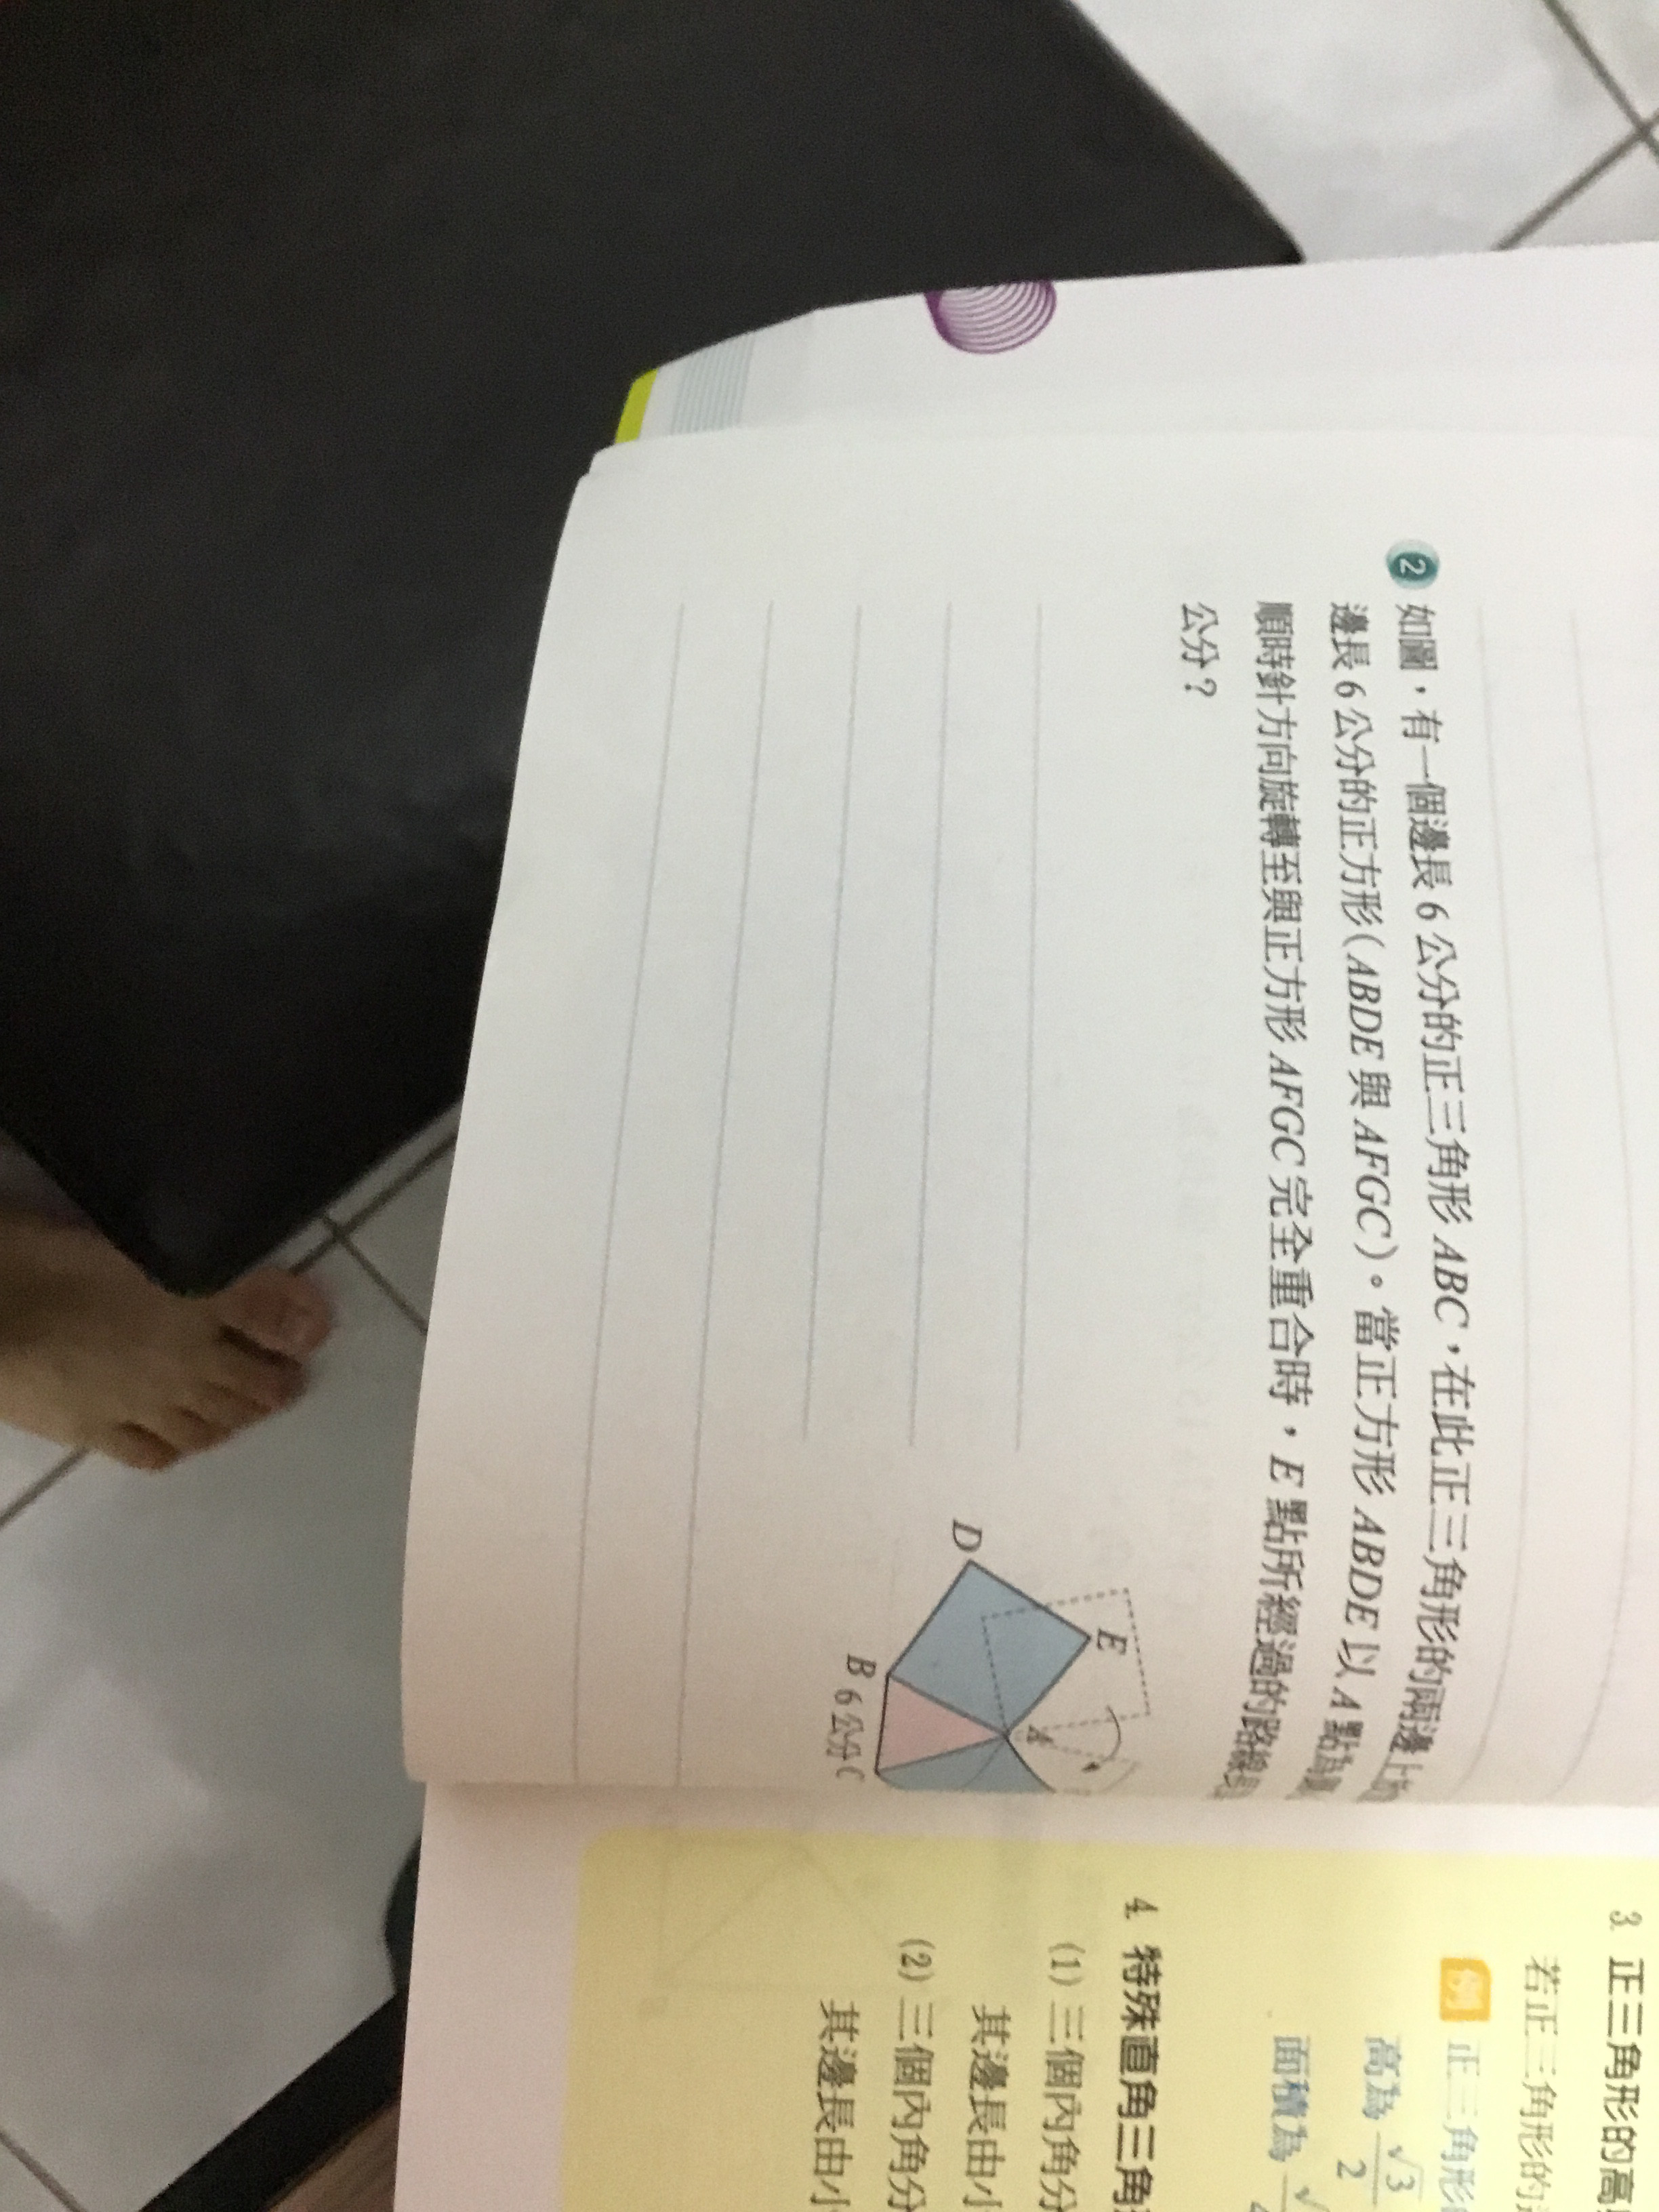 2 如圖，有一個邊長 6 公分的正三角形 ABC，在此正三角形的兩邊上
邊長 6 公分的正方形(ABDE 與 AFGC)。當正方形 ABDE 以 A 點為
順時針方向旋轉至與正方形 AFGC 完全重合時，E 點所經過的路線
公分？
D
E
A
B 6 公分 C
3. 正三角形的高
若正三角形的
例 正三角形
高為 √3 2
面積為 √
4. 特殊直角三角
(1) 三個內角分
其邊長由小
(2) 三個內角分
其邊長由小